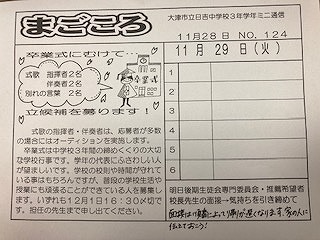 まごころ
大津市立日吉中学校3年学年ミニ通信
11月28日 NO.124
卒業式にむけて…
式歌 指揮者2名
伴奏者2名
別れの言葉 2名
卒業式
立候補を募ります!
式歌の指揮者・伴奏者は、応募者が多数
の場合にはオーディションを実施します。
卒業式は中学校3年間の締めくくりの大切
な学校行事です。学年の代表にふさわしい人が
望ましいです。学校の校則や時間が守れて
いる事はもちろんですが、普段の学校生活や
授業にも頑張ることができてる人を募集し
ます。いずれも12月1日16:30〆切で
す。担任の先生まで申し出てください。
11月29日(火)
1
2
3
4
5
6
明日後期生徒会専門委員会・推薦希望者
校長先生の面接→気持ちを引き締めて
面接は順番によっては帰りが遅くなります。